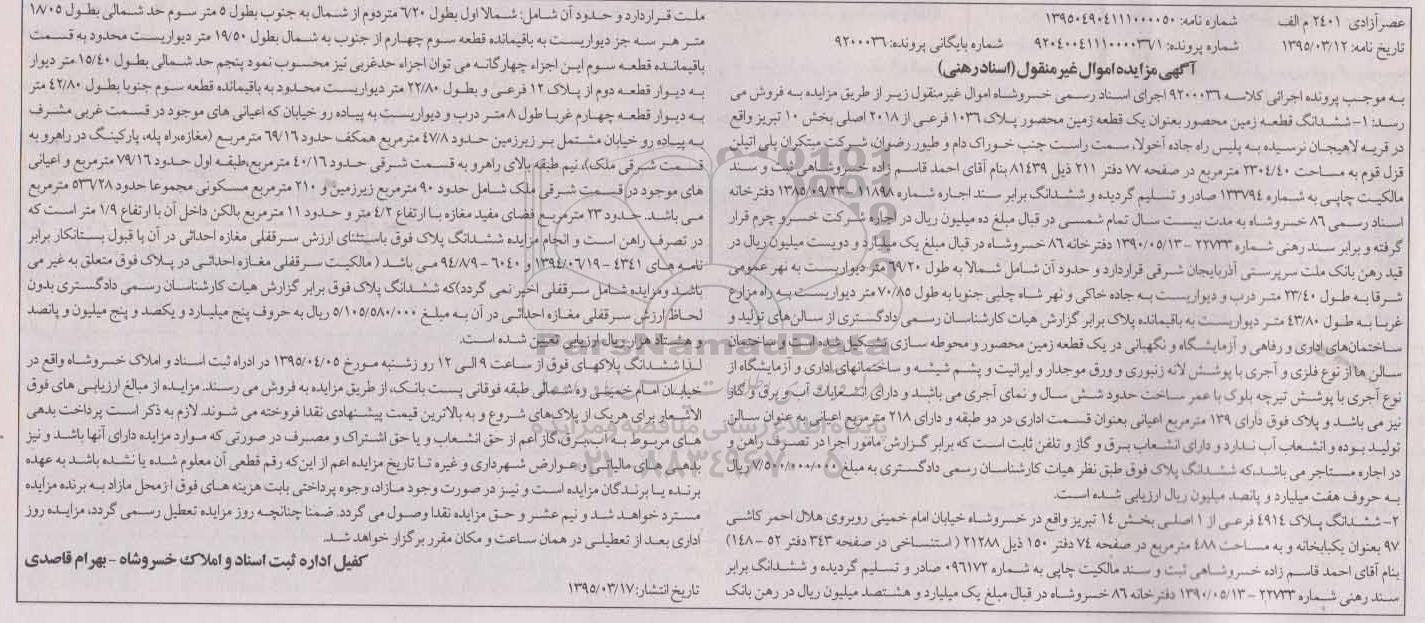 عصر آزادی ۲۴۰۱ م الف
شماره نامه: ۱۳۹۵۰۴۹۰۴۱۱۱۰۰۰۰۵۰
تاریخ نامه: ۱۳۹۵/۰۳/۱۲ شماره پرونده: ۹۲۰۴۰۰۴۱۱۱۰۰۰۰۳۶/۱ شماره بایگانی پرونده: ۹۲۰۰۰۳۶
آگهی مزایده اموال غیر منقول (اسناد رهنی)
به موجب پرونده اجرائی کلاسه ۹۲۰۰۰۳۶ اجرای اسناد رسمی خسروشاه اموال غیر منقول زیر از طریق مزایده به فروش می
رسد: ۱- ششدانگ قطعه زمین محصور بعنوان یک قطعه زمین محصور پلاک ۱۰۳۶ فرعی از ۲۰۱۸ اصلی بخش ۱۰ تبریز واقع
در قریه لاهیجان نرسیده به پلیس راه جاده آخولا، سمت راست جنب خوراک دام و طیور رضوان، شرکت مبتکران پلی اتیلن
قزل قوم به مساحت ۲۳۰۴/۴۰ مترمربع در صفحه ۷۷ دفتر ۲۱۱ ذیل ۸۱۴۳۹ بنام آقای احمد قاسم زاده خسروشاهی ثبت و سند
مالکیت چاپی به شماره ۱۳۳۷۹۴ صادر و تسلیم گردیده و ششدانگ برابر سند اجاره شماره ۱۱۸۹۸ - ۱۳۸۵/۰۹/۲۳ دفترخانه
اسناد رسمی ۸۶ خسروشاه به مدت بیست سال تمام شمسی در قبال مبلغ ده میلیون ریال در اجاره شرکت خسرو چرم قرار
گرفته و برابر سند رهنی شماره ۲۲۷۳۳ - ۱۳۹۰/۰۵/۱۳ دفترخانه ۸۶ خسروشاه در قبال مبلغ یک میلیارد و دویست میلیون ریال در
قید رهن بانک ملت سرپرستی آذربایجان شرقی قراردارد و حدود آن شامل شمالا به طول ۶۹/۲۰ متر دیواریست به نهر عمومی
شرقا به طول ۲۳/۴۰ متر درب و دیواریست به جاده خاکی و نهر شاه چلبی جنوبا به طول ۷۰/۸۵ متر دیواریست به راه مزارع
غربا به طول ۴۳/۸۰ متر دیواریست به باقیمانده پلاک برابر گزارش هیات کارشناسان رسمی دادگستری از سالن های تولید و
ساختمان های اداری و رفاهی و آزمایشگاه و نگهبانی در یک قطعه زمین محصور و محوطه سازی تشکیل شده است و ساختمان
سالن ها از نوع فلزی و آجری با پوشش لانه زنبوری و ورق موجدار و ایرانیت و پشم شیشه و ساختمانهای اداری و آزمایشگاه از
نوع آجری با پوشش تیرچه بلوک با عمر ساخت حدود شش سال و نمای آجری می باشد و دارای انشعابات آب و برق و گاز
نیز می باشد و پلاک فوق دارای ۱۳۹ مترمربع اعیانی بعنوان قسمت اداری در دو طبقه و دارای ۲۱۸ مترمربع اعیانی به عنوان سالن
تولید بوده و انشعاب آب ندارد و دارای انشعاب برق و گاز و تلفن ثابت است که برابر گزارش مامور اجرا در تصرف راهن و
در اجاره مستاجر می باشد.که ششدانگ پلاک فوق طبق نظر هیات کارشناسان رسمی دادگستری به مبلغ ۷/۵۰۰/۰۰۰/۰۰۰ ریال
به حروف هفت میلیارد و پانصد میلیون ریال ارزیابی شده است.
۲- ششدانگ پلاک ۴۹۱۴ فرعی از ۱ اصلی بخش ۱۴ تبریز واقع در خسروشاه خیابان امام خمینی روبروی هلال احمر کاشی
۹۷ بعنوان یکبابخانه و به مساحت ۴۸۸ مترمربع در صفحه ۷۴ دفتر ۱۵۰ ذیل ۲۱۲۸۸ ( استنساخی در صفحه ۳۴۳ دفتر ۵۲ - ۱۴۸)
بنام آقای احمد قاسم زاده خسروشاهی ثبت و سند مالکیت چاپی به شماره ۰۹۶۱۷۲ صادر و تسلیم گردیده و ششدانگ برابر
سند رهنی شماره ۲۲۷۳۳ - ۱۳۹۰/۰۵/۱۳ دفترخانه ۸۶ خسروشاه در قبال مبلغ یک میلیارد و هشتصد میلیون ریال در رهن بانک
ملت قراردارد و حدود آن شامل: شمالا اول بطول ۶/۲۰ متردوم از شمال به جنوب بطول ۵ متر سوم حد شمالی بطول ۱۸/۰۵
متر هر سه جز دیواریست به باقیمانده قطعه سوم چهارم از جنوب به شمال بطول ۱۹/۵۰ متر دیواریست محدود به قسمت
باقیمانده قطعه سوم این اجزاء چهارگانه می توان اجزاء حدغربی نیز محسوب نمود پنجم حد شمالی بطول ۱۵/۴۰ متر دیوار
به دیوار قطعه دوم از پلاک ۱۲ فرعی و بطول ۲۲/۸۰ متر دیواریست محدود به باقیمانده قطعه سوم جنوبا بطول ۴۲/۸۰ متر
به دیوار قطعه چهارم غربا طول ۸ متر درب و دیواریست به پیاده رو خیابان که اعیانی های موجود در قسمت غربی مشرف
به پیاده رو خیابان مشتمل بر زیرزمین حدود ۴۷/۸ مترمربع همکف حدود ۶۹/۱۶ مترمربع (مغازه،راه پله، پارکینگ در راهرو به
قسمت شرقی ملک)، نیم طبقه بالای راهرو به قسمت شرقی حدود ۴۰/۱۶ مترمربع،طبقه اول حدود ۷۹/۱۶ مترمربع و اعیانی
های موجود در قسمت شرقی ملک شامل حدود ۹۰ مترمربع زیرزمین و ۲۱۰ مترمربع مسکونی مجموعا حدود ۵۳۶/۲۸ مترمربع
می باشد. حدود ۲۳ مترمربع فضای مفید مغازه با ارتفاع ۴/۲ متر و حدود ۱۱ مترمربع بالکن داخل آن با ارتفاع ۱/۹ متر است که
در تصرف راهن است و انجام مزایده ششدانگ پلاک فوق باستثنای ارزش سرقفلی مغازه احداثی در آن با قبول بستانکار برابر
نامه های ۴۳۴۱ - ۱۳۹۴/۰۶/۱۹ و ۶۰۴۰ - ۹۴/۸/۹ می باشد ( مالکیت سرقفلی مغازه احداثی در پلاک فوق متعلق به غیر می
باشد و مزایده شامل سرقفلی اخیر نمی گردد)که ششدانگ پلاک فوق برابر گزارش هیات کارشناسان رسمی دادگستری بدون
لحاظ ارزش سرقفلی مغازه احداثی در آن به مبلغ ۵/۱۰۵/۵۸۰/۰۰۰ ریال به حروف پنج میلیارد و یکصد و پنج میلیون و پانصد
و هشتاد هزار ریال ارزیابی تعیین شده است.
لذا ششدانگ پلاکهای فوق از ساعت ۹ الی ۱۲ روز شنبه مورخ ۱۳۹۵/۰۴/۰۵ در اداره ثبت اسناد و املاک خسروشاه واقع در
خیابان امام خمینی ره شمالی طبقه فوقانی پست بانک، از طریق مزایده به فروش می رسند. مزایده از مبالغ ارزیابی های فوق
الاشعار برای هریک از پلاک های شروع و به بالاترین قیمت پیشنهادی نقدا فروخته می شوند. لازم به ذکر است پرداخت بدهی
های مربوط به آب،برق،گاز اعم از حق انشعاب و یا حق اشتراک و مصرف در صورتی که موارد مزایده دارای آنها باشد و نیز
بدهی های مالیاتی و عوارض شهرداری و غیره تا تاریخ مزایده اعم از این که رقم قطعی آن معلوم شده یا نشده باشد به عهده
برنده یا برندگان مزایده است و نیز در صورت وجود مازاد، وجوه پرداختی بابت هزینه های فوق ازمحل مازاد به برنده مزایده
مسترد خواهد شد و نیم عشر و حق مزایده نقدا وصول می گردد. ضمنا چنانچه روز مزایده تعطیل رسمی گردد، مزایده روز
اداری بعد از تعطیلی در همان ساعت و مکان مقرر برگزار خواهد شد.
کفیل اداره ثبت اسناد و املاک خسروشاه - بهرام قاصدی
تاریخ انتشار: ۱۳۹۵/۰۳/۱۷
ParsNamadData
پایگاه اطلاع رسانی مناقصه و مزایده
۰۲۱-۸۸۳۴۹۶۷۰-۵